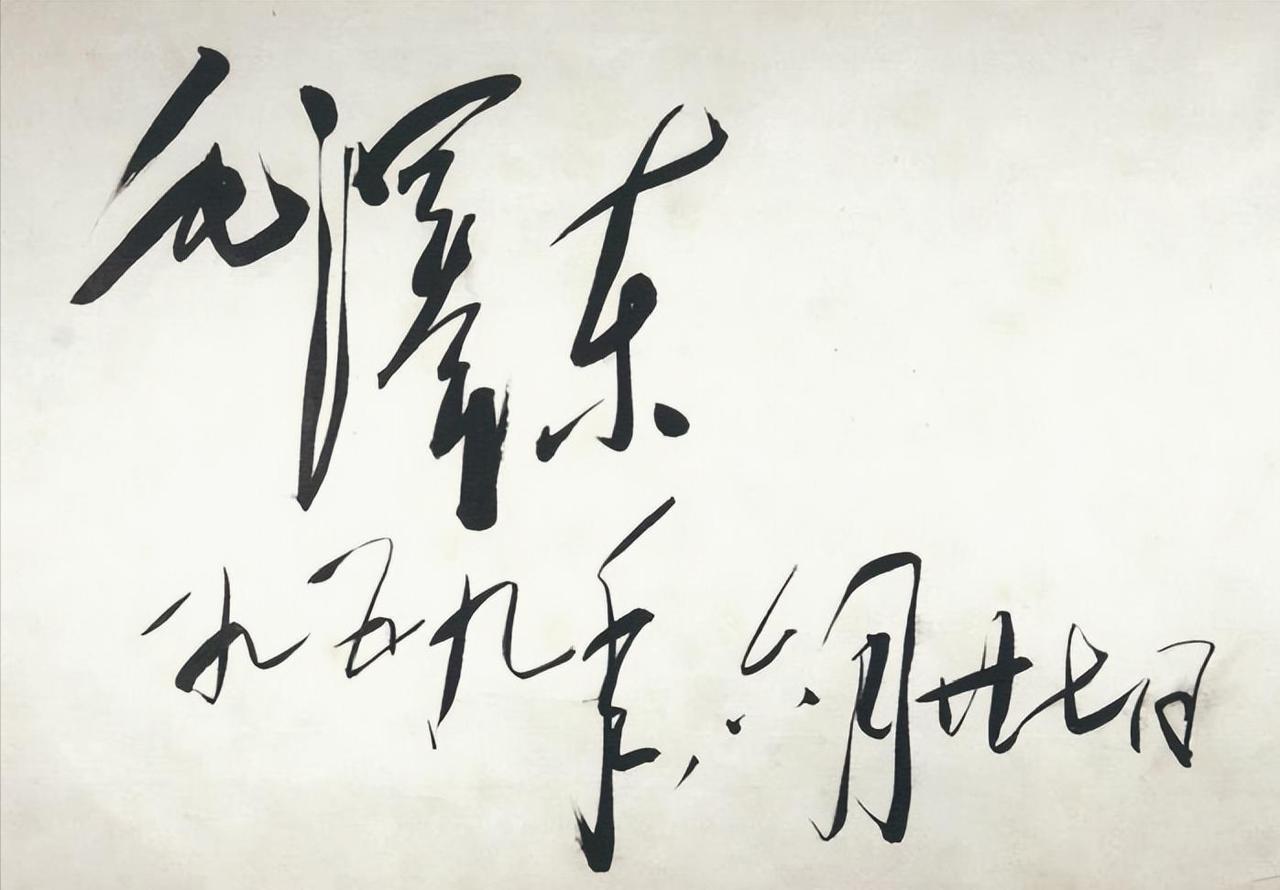 毛澤东
一九五九年，六月廿七日